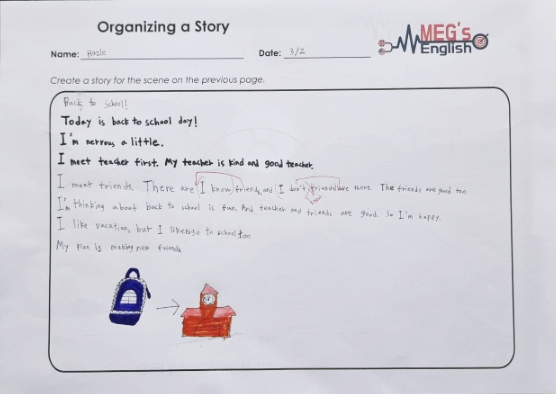 Organizing a Story
MEG's English
Name: Hazle
Date: 3/2
Create a story for the scene on the previous page.
Back to school!
Today is back to school day!
I'm nervous a little.
I meet teacher first. My teacher is kind and good teacher.
I meet friends. There are I know friends, and I don't friends are there. The friends are good too.
I'm thinking about back to school is fun. And teacher and friends are good. So I'm happy.
I like vacation, but I go to school too.
My plan is making new friends